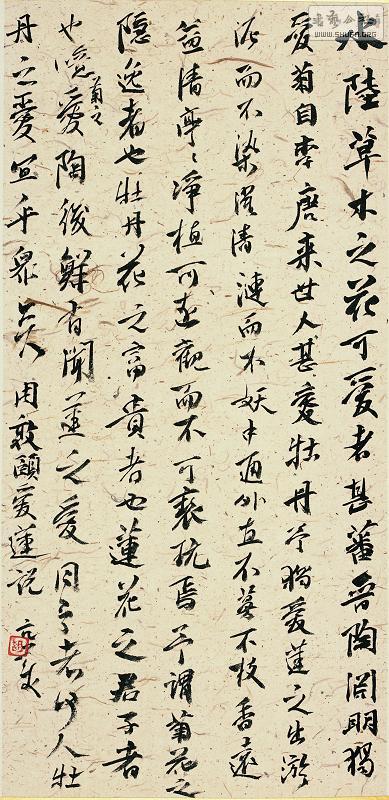 水陸草木之花可愛者甚蕃晉陶淵明獨
愛菊自李唐來世人甚愛牡丹予獨愛蓮之出淤
泥而不染濯清漣而不妖中通外直不蔓不枝香遠
益清亭〻淨植可遠觀而不可褻玩焉予謂菊花之
隱逸者也牡丹花之富貴者也蓮花之君子者
也噫菊之愛陶後鮮有聞蓮之愛同予者何人牡
丹之愛宜乎眾矣 周敦頤愛蓮說
WWW.SHUFA.ORG